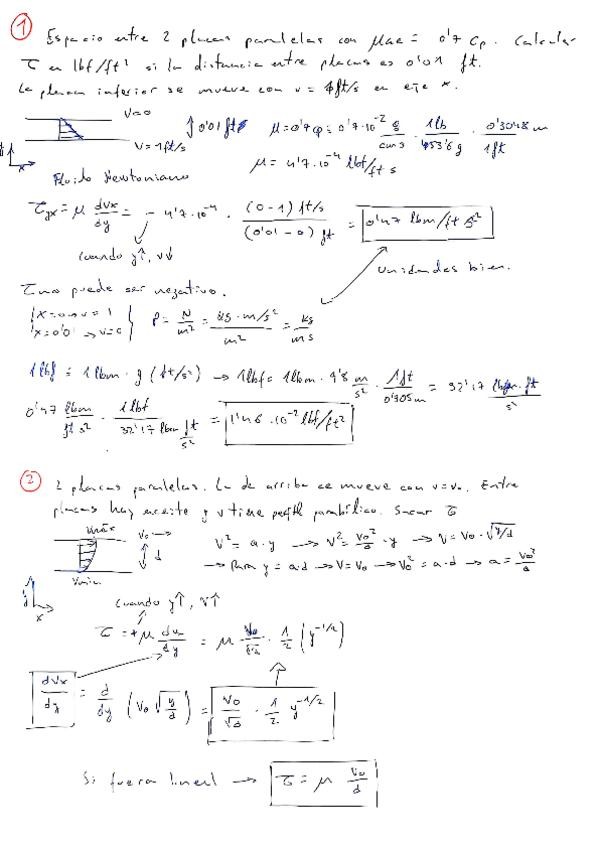 ① Espacio entre 2 placas paralelas con μ = 0'7 Cp. Calcular
τ en lbf/ft² si la distancia entre placas es 0'01 ft.
La placa inferior se mueve con v = 1ft/s en eje x.
V=0
V = 1ft/s
↑ 0'01 ft
x
μ=0'7cp = 0'7·10⁻² g/cm s · 1lb/453'6g · 0'3048m/1ft
μ = 4'7·10⁻⁴ lbf/ft s
Fluido Newtoniano
τyx = μ dVx/dy = - 4'7·10⁻⁴ · (0-1) ft/s / (0'01-0) ft = 0'047 lbm/ft s²
cuando y↑, v↓
Unidades bien.
τ no puede ser negativo.
x=0 → v = 1
x=0'01 → v=0
P = N/m² = kg·m/s² / m² = kg/m s
1lbf = 1lbm · g (ft/s²) → 1lbf = 1lbm · 9'8 m/s² · 1ft/0'305m = 32'17 lbm·ft/s²
0'047 lbm/ft s² · 1lbf / 32'17 lbm ft/s² = 1'46·10⁻² lbf/ft²
② 2 placas paralelas. La de arriba se mueve con v=v₀. Entre
placas hay aceite y v tiene perfil parabólico. Sacar τ
Vmáx
V₀ →
d
Vmin
y
x
V² = a·y → V² = V₀²/d · y → V = V₀·√(y/d)
→ Para y = d → V=V₀ → V₀² = a·d → a = V₀²/d
cuando y↑, v↑
τ = +μ dvx/dy = μ V₀/√d · 1/2 (y⁻¹/²)
dVx/dy = d/dy (V₀ √(y/d)) = V₀/√d · 1/2 y⁻¹/²
Si fuera lineal → τ = μ V₀/d